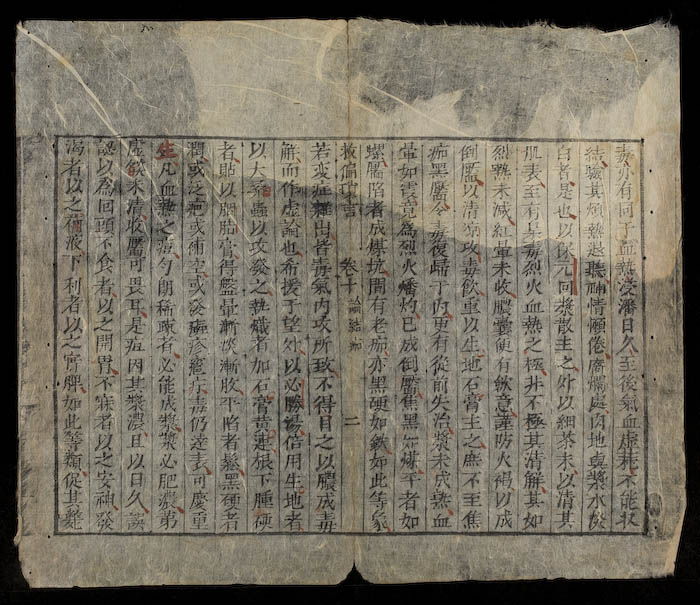 毒亦有同于血熱浸潘日久至後氣血虛耗不能收
結驗其煩熱退聽神情倦觸處肉地虛漿水淡
白者是也以保元回漿散主之外以細茶末以清其
肌表至有吴毒烈火血熱之極并不極其清解其如
烈熱未減紅暈未收膿囊便有歛意謹防火褐以成
倒靨以清凉攻毒飲重以生地石膏主之庶不至焦
痂黑靨令毒復歸于内更有從前失治漿未成熱血
暈如雲竟為烈火燔灼已成倒靨焦黑如煤平者如
螺靨陷者成煤坑間有老痂亦黑硬如鐵如此等象
救偏瑣言 卷十 論結痂 二
若变症雜出皆毒氣内攻所致不得目之以膿成毒
解而作虛論也希援于望外以必勝湯倍用生地者
以大桑蟲以攻發之熱熾者加石膏黄連根下腫硬
者貼以胭脂膏得靨暈漸淡漸收平陷者鬆黑硬者
潤或泛疤或術空或發痲疹瘡疥毒仍達表可慶重
生凡血熱之痘勻朗稀疎者必能成漿漿必肥濃第
虛歛未清收靨可畏耳是痘因其漿濃且以日久誤
認以為回頭不食者以之開胃不寐者以之安神發
渴者以之補液下利者以之實脾如此等類從其雜